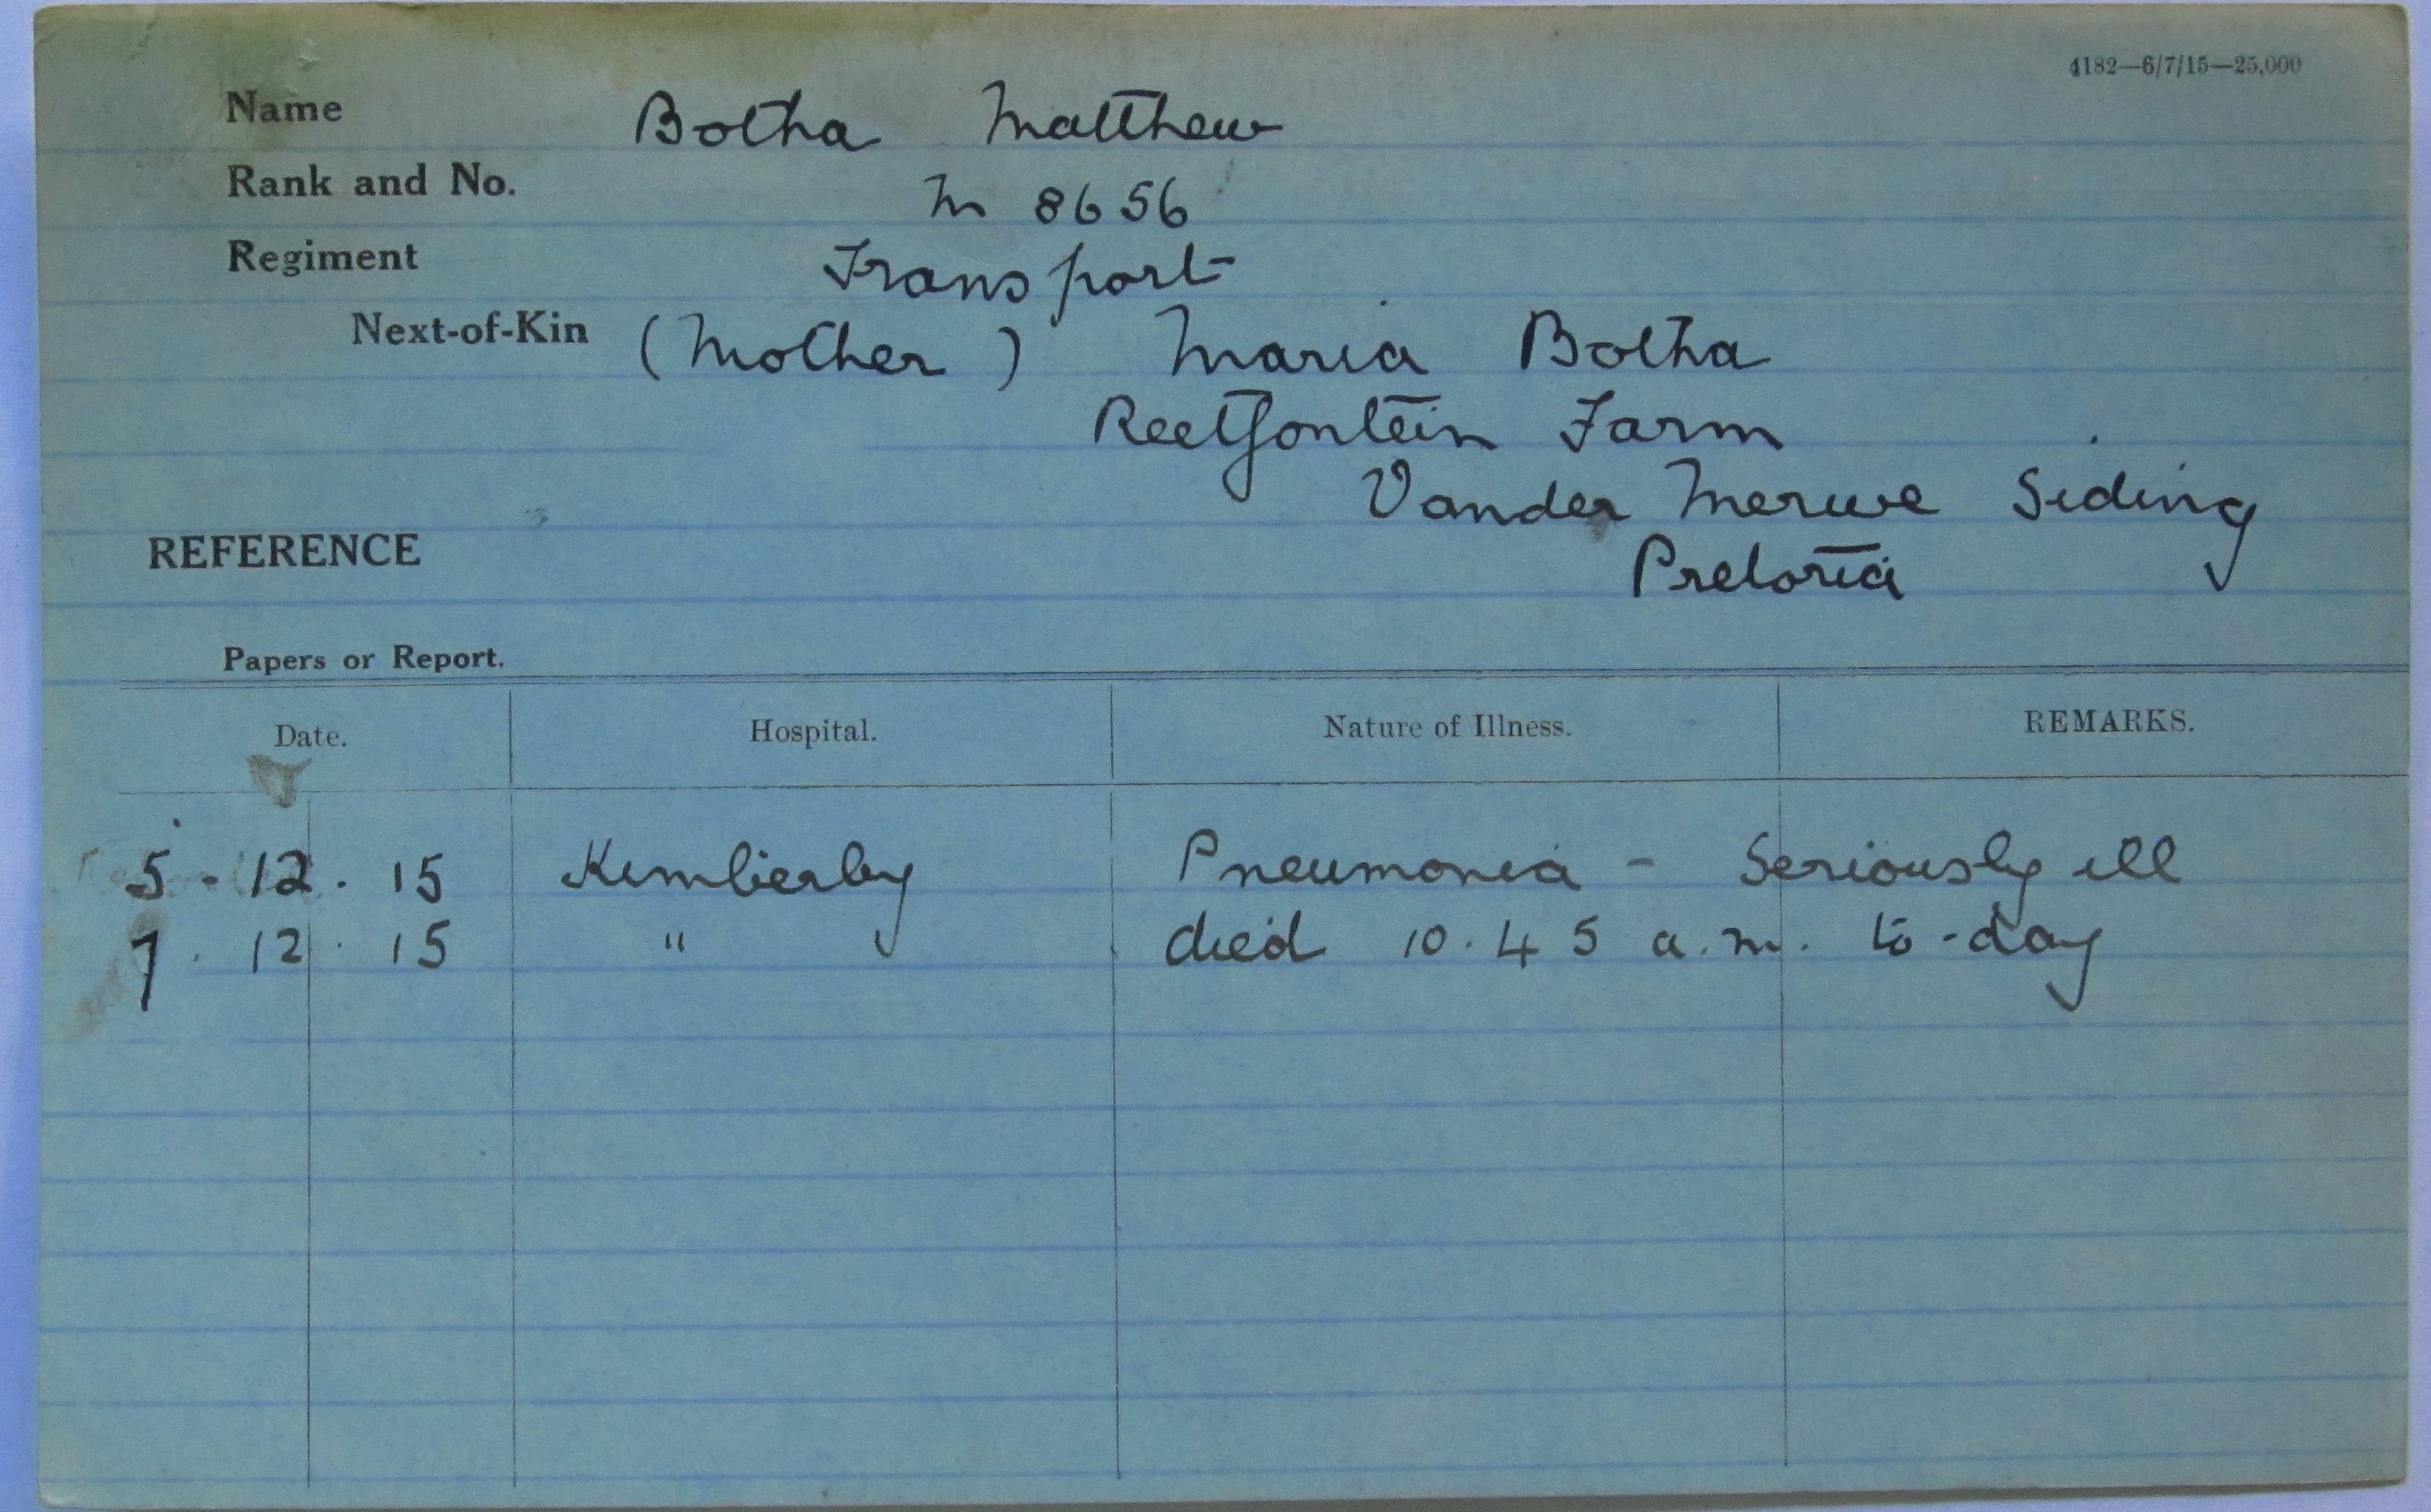 4182—6/7/15—25,000
Name Botha Matthew
Rank and No. M 8656
Regiment Transport
Next-of-Kin (Mother) Maria Botha
Reetfontein Farm
Vander Merwe Siding
REFERENCE Pretoria
Papers or Report.
Date. Hospital. Nature of Illness. REMARKS.
5-12.15 Kimberley Pneumonia - Seriously ill
7.12.15 " died 10.45 a.m. to-day